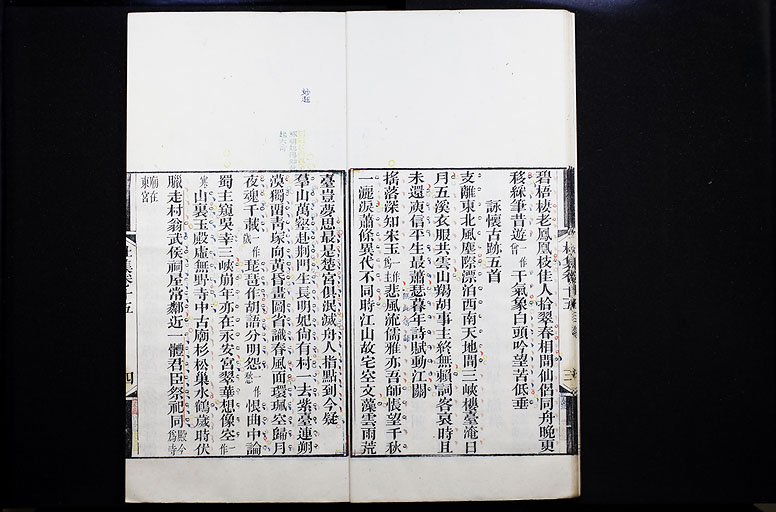 碧梧棲老鳳凰枝佳人拾翠春相問仙侶同舟晚更
移綵筆昔遊一作曾干氣象白頭吟望苦低垂
詠懷古跡五首
支離東北風塵際漂泊西南天地間三峽樓臺淹日
月五溪衣服共雲山羯胡事主終無賴詞客哀時且
未還庾信平生最蕭瑟暮年詩賦動江關
搖落深知宋玉一作為悲風流儒雅亦吾師悵望千秋
一灑淚蕭條異代不同時江山故宅空文藻雲雨荒
三
臺豈夢思最是楚宮俱泯滅舟人指點到今疑
羣山萬壑赴荊門生長明妃尚有村一去紫臺連朔
漠獨留青塚向黃昏畫圖省識春風面環珮空歸月
夜魂千載一作歲琵琶作胡語分明怨一作愁恨曲中論
蜀主窺吳幸三峽崩年亦在永安宮翠華想像空一作
寒山裏玉殿虛無野寺中古廟杉松巢水鶴歲時伏
臘走村翁武侯祠屋常鄰近一體君臣祭祀同殿今為寺
廟在東宮
杜集卷十五
四
妙起